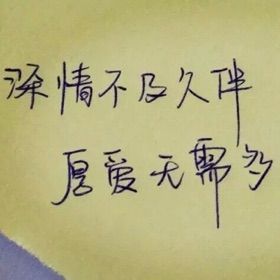 深情不及久伴
厚爱无需多